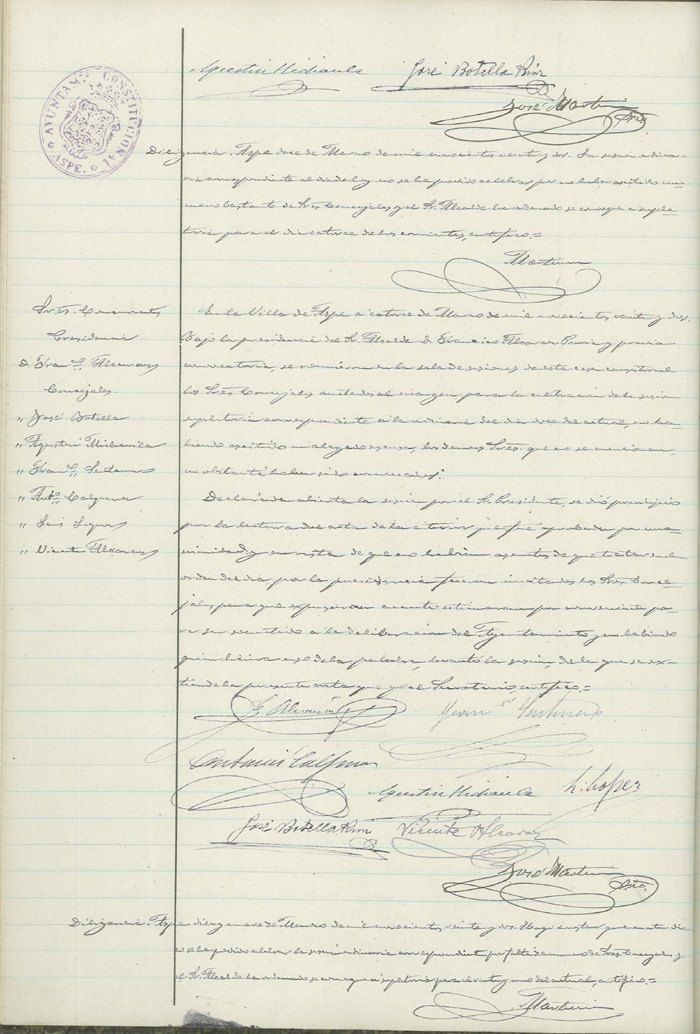 AYUNTAMTO CONSTITUCIONAL
ASPE.
Agustin Mirambla José Botella Rizo
José Martin Srio.
Diligencia. Aspe doce de Marzo de mil novecientos veinte y dos. La sesion ordina-
ria correspondiente al dia de hoy no se ha podido celebrar por no haber asistido nu-
mero bastante de Sres. Concejales y el Sr. Alcalde ha ordenado se convoque a suple-
toria para el dia catorce de los corrientes, certifico.=
Martin
Sres. Concurrentes
Presidencia
D. Franco. Alcaraz
Concejales.
" José Botella
" Agustin
" Franco.
" Anto. Calpena
" Luis Lopez
" Vicente Alcaraz
En la Villa de Aspe a catorce de Marzo de mil novecientos veinte y dos.
Bajo la presidencia del Sr. Alcalde D. Francisco Alcaraz y previa
convocatoria, se reunieron en la sala de sesiones de esta casa consistorial
los Sres. Concejales anotados al margen para la celebracion de la sesion
supletoria correspondiente a la ordinaria del dia doce del actual, no ha-
biendo asistido ni alegado escusa, los demas Sres. que no se mencionan,
no obstante haber sido convocados.
Declarada abierta la sesion por el Sr. Presidente, se dió principio
por la lectura del acta de la anterior que fué aprobada por una-
nimidad y en vista de que no habian asuntos de que tratar en la
orden del dia por la presidencia fueron invitados los Sres. Conce-
jales para que expusieran cuanto estimaran por conveniente pa-
ra ser sometido a la deliberacion del Ayuntamiento y no habiendo
quien hiciera uso de la palabra, levantó la sesion, de la que se ex-
tiende la presente acta que yo el Secretario, certifico.=
F. Alcaraz
Antonio Calpena
Agustin L. Lopez
José Botella Rizo Vicente Alcaraz
José Martin Srio.
Diligencia. Aspe diez y nueve de Marzo de mil novecientos veinte y dos. Hago constar que en este dia
no se ha podido celebrar la sesion ordinaria correspondiente por falta de numero de Sres. Concejales y
el Sr. Alcalde ha ordenado se convoque a supletoria para el veinte y uno del actual, certifico.=
Martin